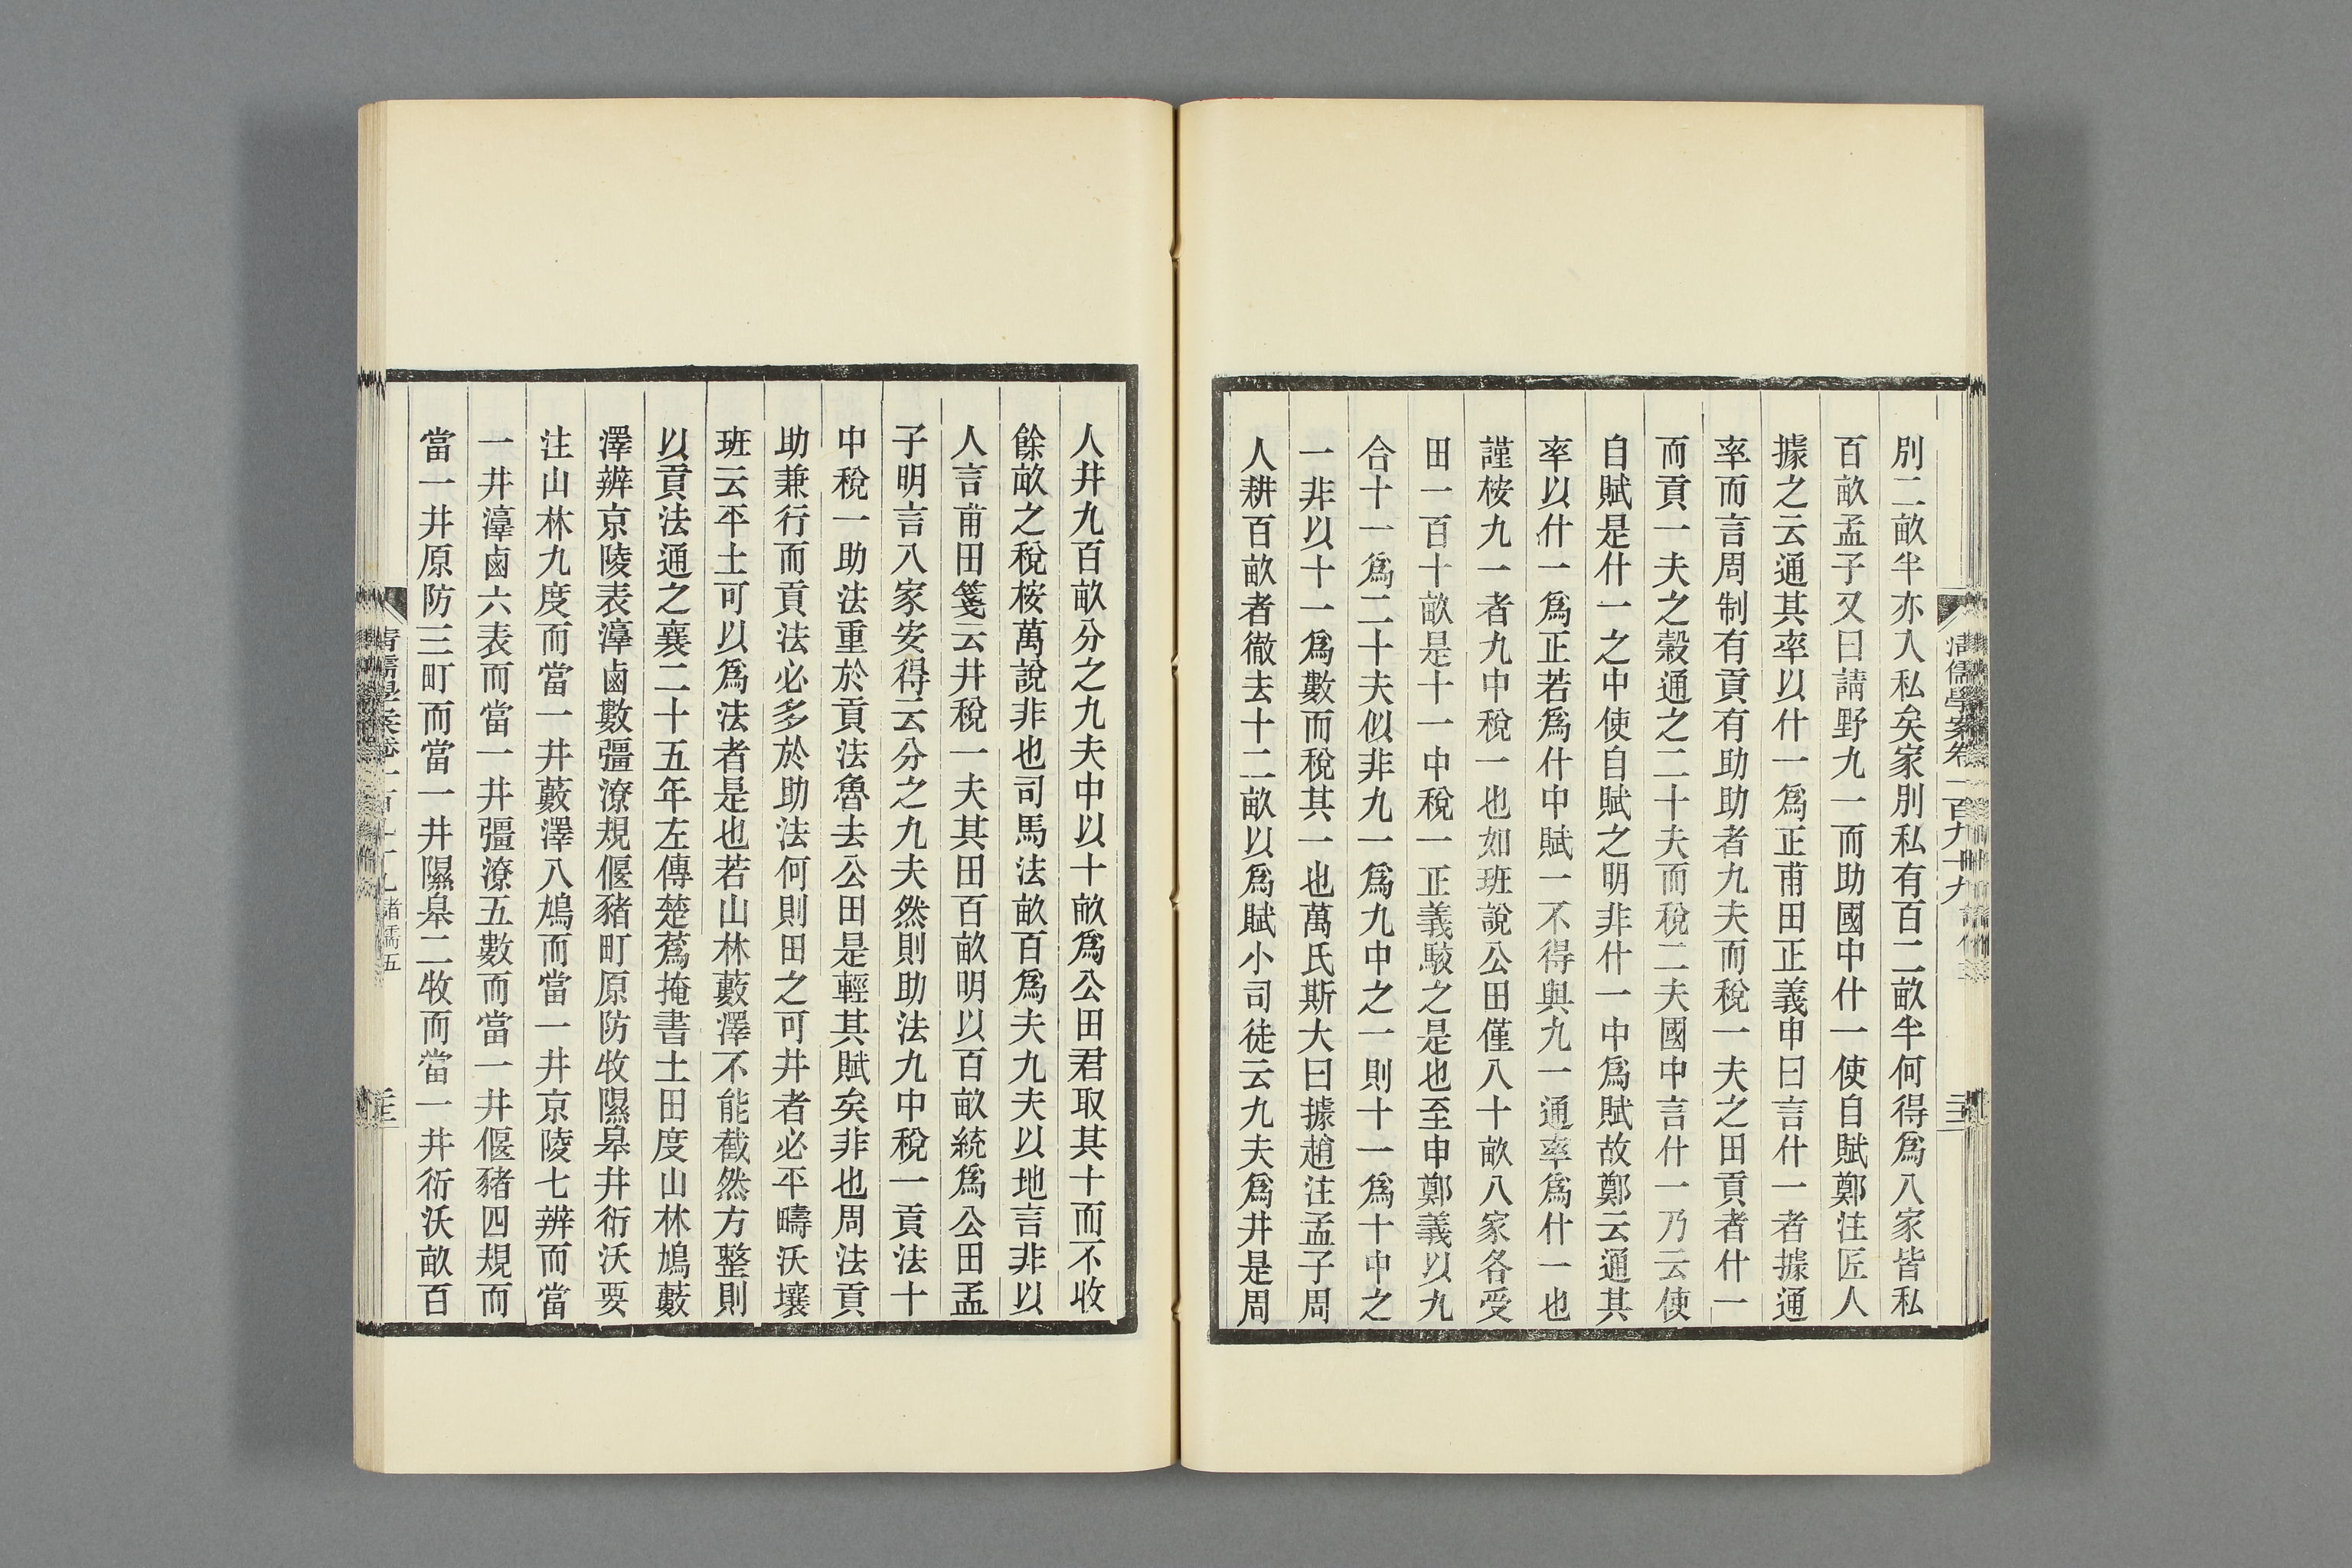 清儒學案卷一百九十九
別二畝半亦入私矣家別私有百二畝半何得爲八家皆私
百畝孟子又曰請野九一而助國中什一使自賦鄭注匠人
據之云通其率以什一爲正甫田正義申曰言什一者據通
率而言周制有貢有助助者九夫而稅一夫之田貢者什一
而貢一夫之穀通之二十夫而稅二夫國中言什一乃云使
自賦是什一之中使自賦之明非什一中爲賦故鄭云通其
率以什一爲正若爲什中賦一不得與九一通率爲什一也
謹桉九一者九中稅一也如班說公田僅八十畝八家各受
田一百十畝是十一中稅一正義駮之是也至申鄭義以九
合十一爲二十夫似非九一爲九中之一則十一爲十中之
一非以十一爲數而稅其一也萬氏斯大曰據趙注孟子周
人耕百畝者徹去十二畝以爲賦小司徒云九夫爲井是周
人井九百畝分之九夫中以十畝爲公田君取其十而不收
餘畝之稅桉萬說非也司馬法畝百爲夫九夫以地言非以
人言甫田箋云井稅一夫其田百畝明以百畝統爲公田孟
子明言八家安得云分之九夫然則助法九中稅一貢法十
中稅一助法重於貢法魯去公田是輕其賦矣非也周法貢
助兼行而貢法必多於助法何則田之可井者必平疇沃壤
班云平土可以爲法者是也若山林藪澤不能截然方整則
以貢法通之襄二十五年左傳楚蔿掩書土田度山林鳩藪
澤辨京陵表淳鹵數彊潦規偃豬町原防牧隰皋井衍沃要
注山林九度而當一井藪澤八鳩而當一井京陵七辨而當
一井淳鹵六表而當一井彊潦五數而當一井偃豬四規而
當一井原防三町而當一井隰皋二牧而當一井衍沃畝百
諸儒五